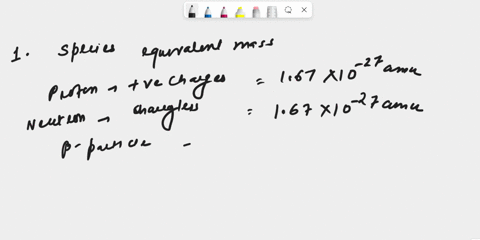 1. Species equivalent mass
Proton → +ve charges = 1.67 × 10⁻²⁷ amu
Neutron → chargless = 1.67 × 10⁻²⁷ amu
β-particle -